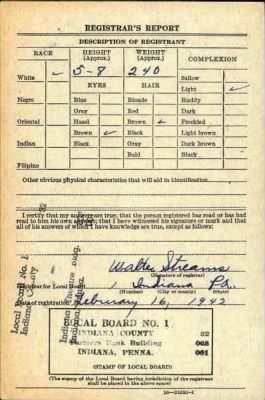 REGISTRAR'S REPORT
DESCRIPTION OF REGISTRANT
RACE HEIGHT (Approx.) WEIGHT (Approx.) COMPLEXION
5-8 240
White ✓ Sallow
EYES HAIR Light ✓
Negro Blue Blonde Ruddy
Gray Red Dark
Oriental Hazel Brown ✓ Freckled
Brown ✓ Black Light brown
Indian Black Gray Dark brown
Bald Black
Filipino
Other obvious physical characteristics that will aid in identification
I certify that my answers are true; that the person registered has read or has had
read to him his own answers; that I have witnessed his signature or mark and that
all of his answers of which I have knowledge are true, except as follows:
Local Board No. 1
Indiana County
Indiana, Penna.
Walter Streams
(Signature of registrar)
Registrar for Local Board 1 Indiana Pa.
(Number) (City or county) (State)
Date of registration February 16, 1942
LOCAL BOARD NO. 1
INDIANA COUNTY 82
Farmers Bank Building 063
INDIANA, PENNA. 001
(STAMP OF LOCAL BOARD)
(The stamp of the Local Board having jurisdiction of the registrant
shall be placed in the above space)